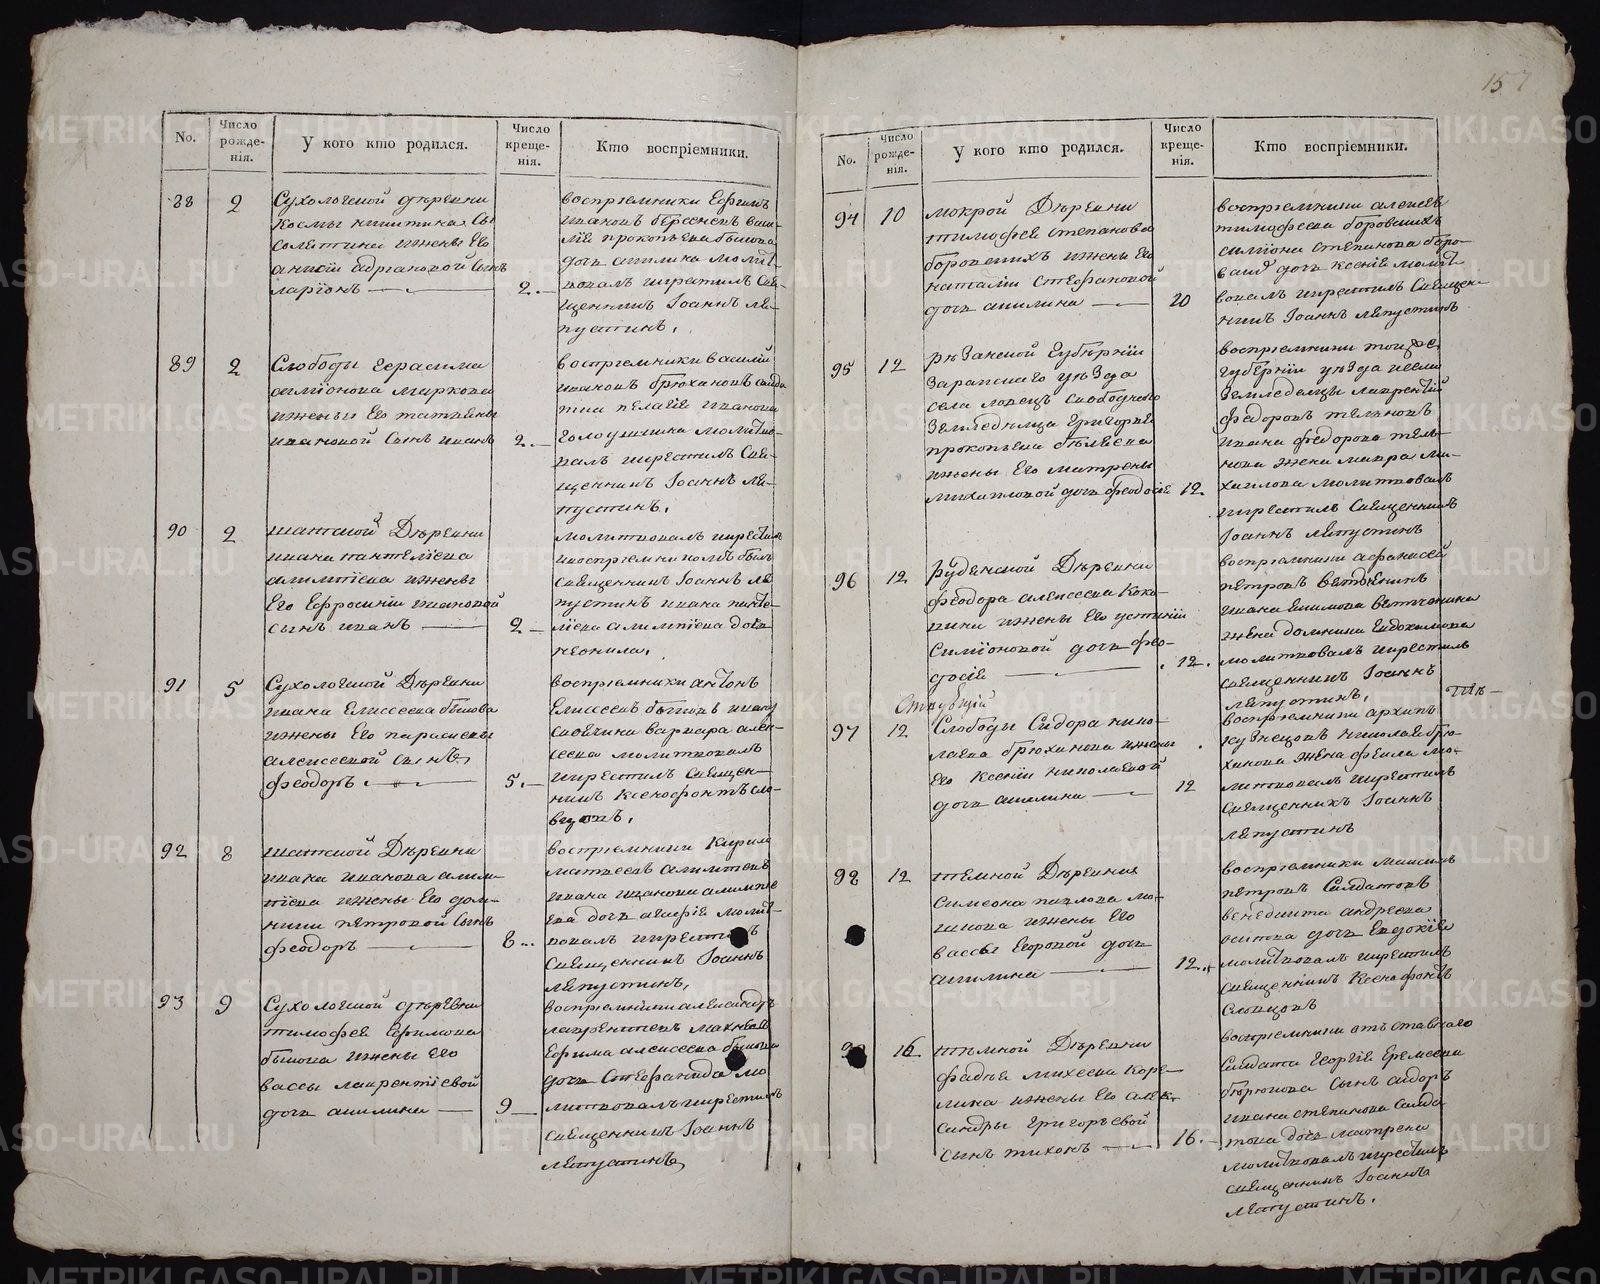 157
No.
Число рожде-нія.
У кого кто родился.
Число креще-нія.
Кто воспріемники.
88
2
Сухоложской деревни
Космы никитина Сы
ижены Его
анисіи адріановой Сынъ
ларіонъ
2.
воспріемники Ефимъ
ивановъ
прокопьева быкова
дочь акилина молит-
вовалъ икрестилъ Свя-
щенникъ Іоаннъ ля-
пустинъ.
89
2
Слободы герасима
симіонова маркова
ижены Его татіяны
ивановой Сынъ иванъ
2.
воспріемники василій
ивановъ брюхановъ
пелагіе иванова
голоушкина молитво-
валъ икрестилъ Свя-
щенникъ Іоаннъ ля-
пустинъ.
90
2
шатской Деревни
ивана пантеліева
алимпіева ижены
Его Ефросиніи ивановой
сынъ иванъ
2
молитвовалъ икрестилъ
ивоспріемникомъ былъ
Священникъ Іоаннъ ля
пустинъ ивана панте-
ліева алимпіева дочь
неонила.
91
5
Сухоложской Деревни
ивана Елисеева быкова
ижены Его параскевы
алексеевой сынъ
феодоръ
5.
воспріемники антонъ
Елисеевъ быковъ
варвара алек-
сеева молитвовалъ
икрестилъ Священ-
никъ Ксенофонтъ Сло-
вцовъ.
92
8
шатской Деревни
ивана иванова алим-
піева ижены Его дом-
ники петровой Сынъ
феодоръ
8
воспріемники Кирилъ
матвеевъ алимпіевъ
ивана иванова алимпіе
ева дочь агафіе молит-
вовалъ икрестилъ
Священникъ Іоаннъ
ляпустинъ.
93
9
Сухоложской деревни
тимофея Ефимова
быкова ижены Его
вассы лаврентіевой
дочь акилина
9
воспріемники александръ
лаврентіевъ
Ефима алексеева быкова
дочь Стефанида мо
литвовалъ икрестилъ
священникъ Іоаннъ
ляпустинъ
No.
Число рожде-нія.
У кого кто родился.
Число креще-нія.
Кто воспріемники.
94
10
мокрой Деревни
тимофея степанова
боровскихъ ижены Его
наталіи Стефановой
дочь акилина
10
воспріемники алексей
тимофеева боровскихъ
симіона степанова боро-
дочь ксеніе молит
вовалъ икрестилъ Священ-
никъ Іоаннъ ляпустинъ
95
12
резанской Губерніи
Зарайскаго уезда
села ловецъ Свободнаго
Земледельца григорья
прокопьева беляева
ижены Его матрены
михаиловой дочь феодосіе
12.
воспріемники тойже
губерніи уезда исела
Земледельцы лаврентій
федоровъ тельновъ
ивана федорова тель-
нова жена мавра ми-
хаилова молитвовалъ
икрестилъ Священникъ
Іоаннъ ляпустинъ
96
12
Рудянской Деревни
феодора алексеева Коко-
рина ижены Его устиніи
Симіоновой дочь фео-
досіе
12.
воспріемники афанасей
петровъ
ивана Екимова
жена домника Евдокимова
молитвовалъ икрестилъ
священникъ Іоаннъ
ляпустинъ.
97
12
Слободы Сидора нико-
лаева брюханова ижены
Его Ксеніи николаевой
дочь акилина
12
воспріемники архипъ
кузнецовъ николая брю-
ханова жена фекла мо-
литвовалъ икрестилъ
Священникъ Іоаннъ
ляпустинъ
98
12
темной Деревни
Симеона павлова мо-
ижены Его
вассы Егоровой дочь
акилина
12.
воспріемники максимъ
петровъ Солдатовъ
венедикта андреева
осипова дочь Евдокіея
молитвовалъ икрестилъ
священникъ Ксенофонтъ
Словцовъ
16
темной Деревни
фадея михеева Коре-
лина ижены Его алек-
сандры григорьевой
сынъ тихонъ
16.
воспріемники отъставнаго
Солдата георгіе Еремеева
бюрюкова Сынъ сидоръ
ивана степанова Солда-
това дочь матрена
молитвовалъ икрестилъ
священникъ Іоаннъ
ляпустинъ.
METRIKI.GASO-URAL.RU